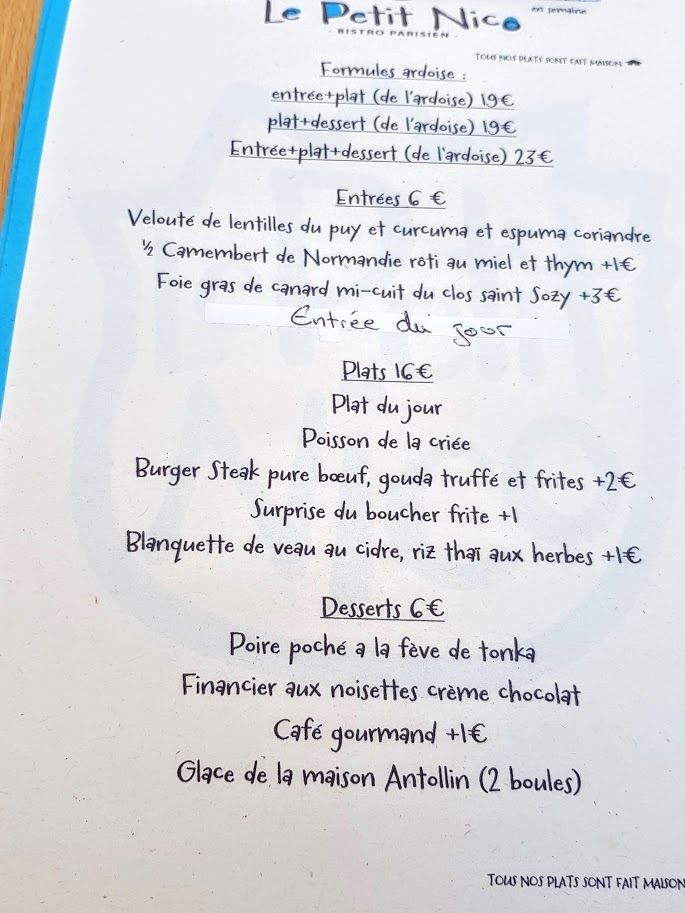 Le Petit Nico
en semaine
- BISTRO PARISIEN -
TOUS NOS PLATS SONT FAIT MAISON
Formules ardoise :
entrée+plat (de l'ardoise) 19€
plat+dessert (de l'ardoise) 19€
Entrée+plat+dessert (de l'ardoise) 23€
Entrées 6 €
Velouté de lentilles du puy et curcuma et espuma coriandre
½ Camembert de Normandie rôti au miel et thym +1€
Foie gras de canard mi-cuit du clos saint Sozy +3€
Entrée du jour
Plats 16€
Plat du jour
Poisson de la criée
Burger Steak pure bœuf, gouda truffé et frites +2€
Surprise du boucher frite +1
Blanquette de veau au cidre, riz thaï aux herbes +1€
Desserts 6€
Poire poché a la fève de tonka
Financier aux noisettes crème chocolat
Café gourmand +1€
Glace de la maison Antollin (2 boules)
TOUS NOS PLATS SONT FAIT MAISON